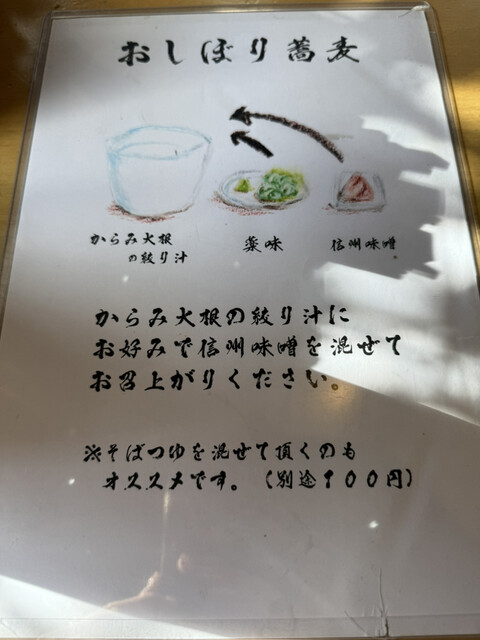 おしぼり蕎麦
からみ大根
の絞り汁
薬味
信州味噌
からみ大根の絞り汁に
お好みで信州味噌を混ぜて
お召上がりください。
※そばつゆを混ぜて頂くのも
オススメです。(別途100円)